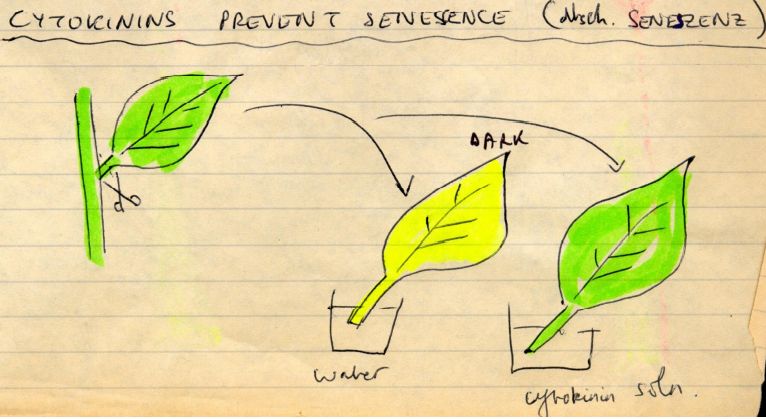 CYTOKININS PREVENT SENESCENCE (dtsch. SENESZENZ)
DARK
water
cytokinin soln.